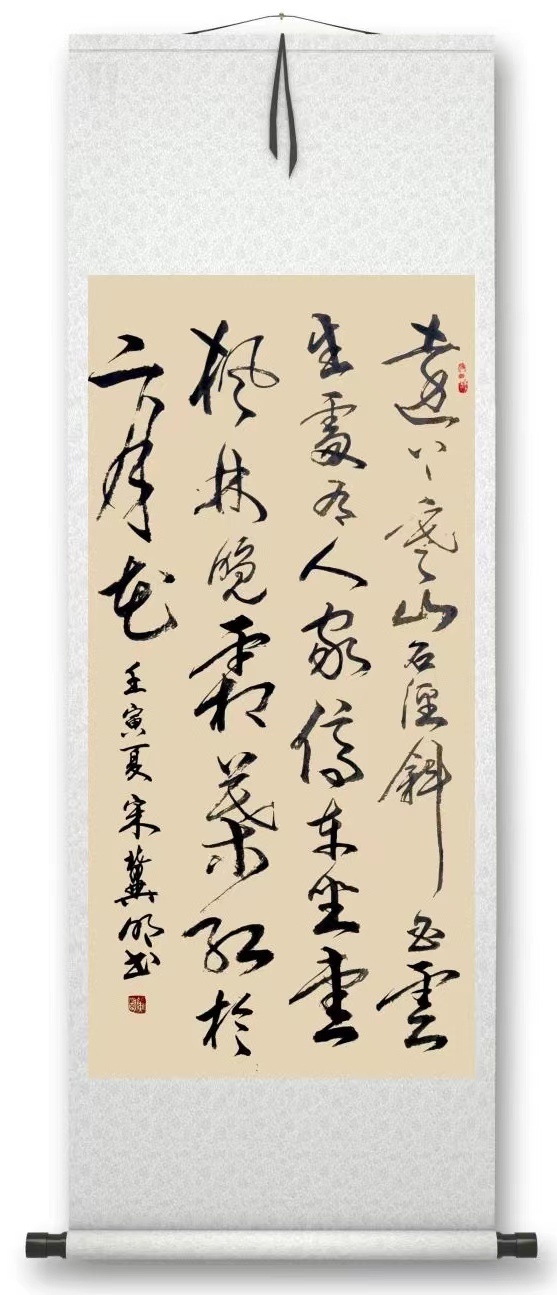 遠上寒山石徑斜白雲
生處有人家停車坐愛
楓林晚霜葉紅於
二月花 壬寅夏宋冀明書